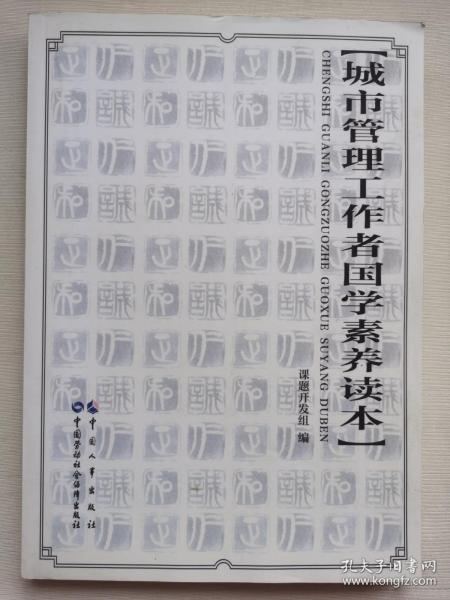 【城市管理工作者国学素养读本】
CHENGSHI GUANLI GONGZUOZHE GUOXUE SUYANG DUBEN
课题开发组 编
中国人事出版社
中国劳动社会保障出版社
孔夫子旧书网
www.kongfz.com